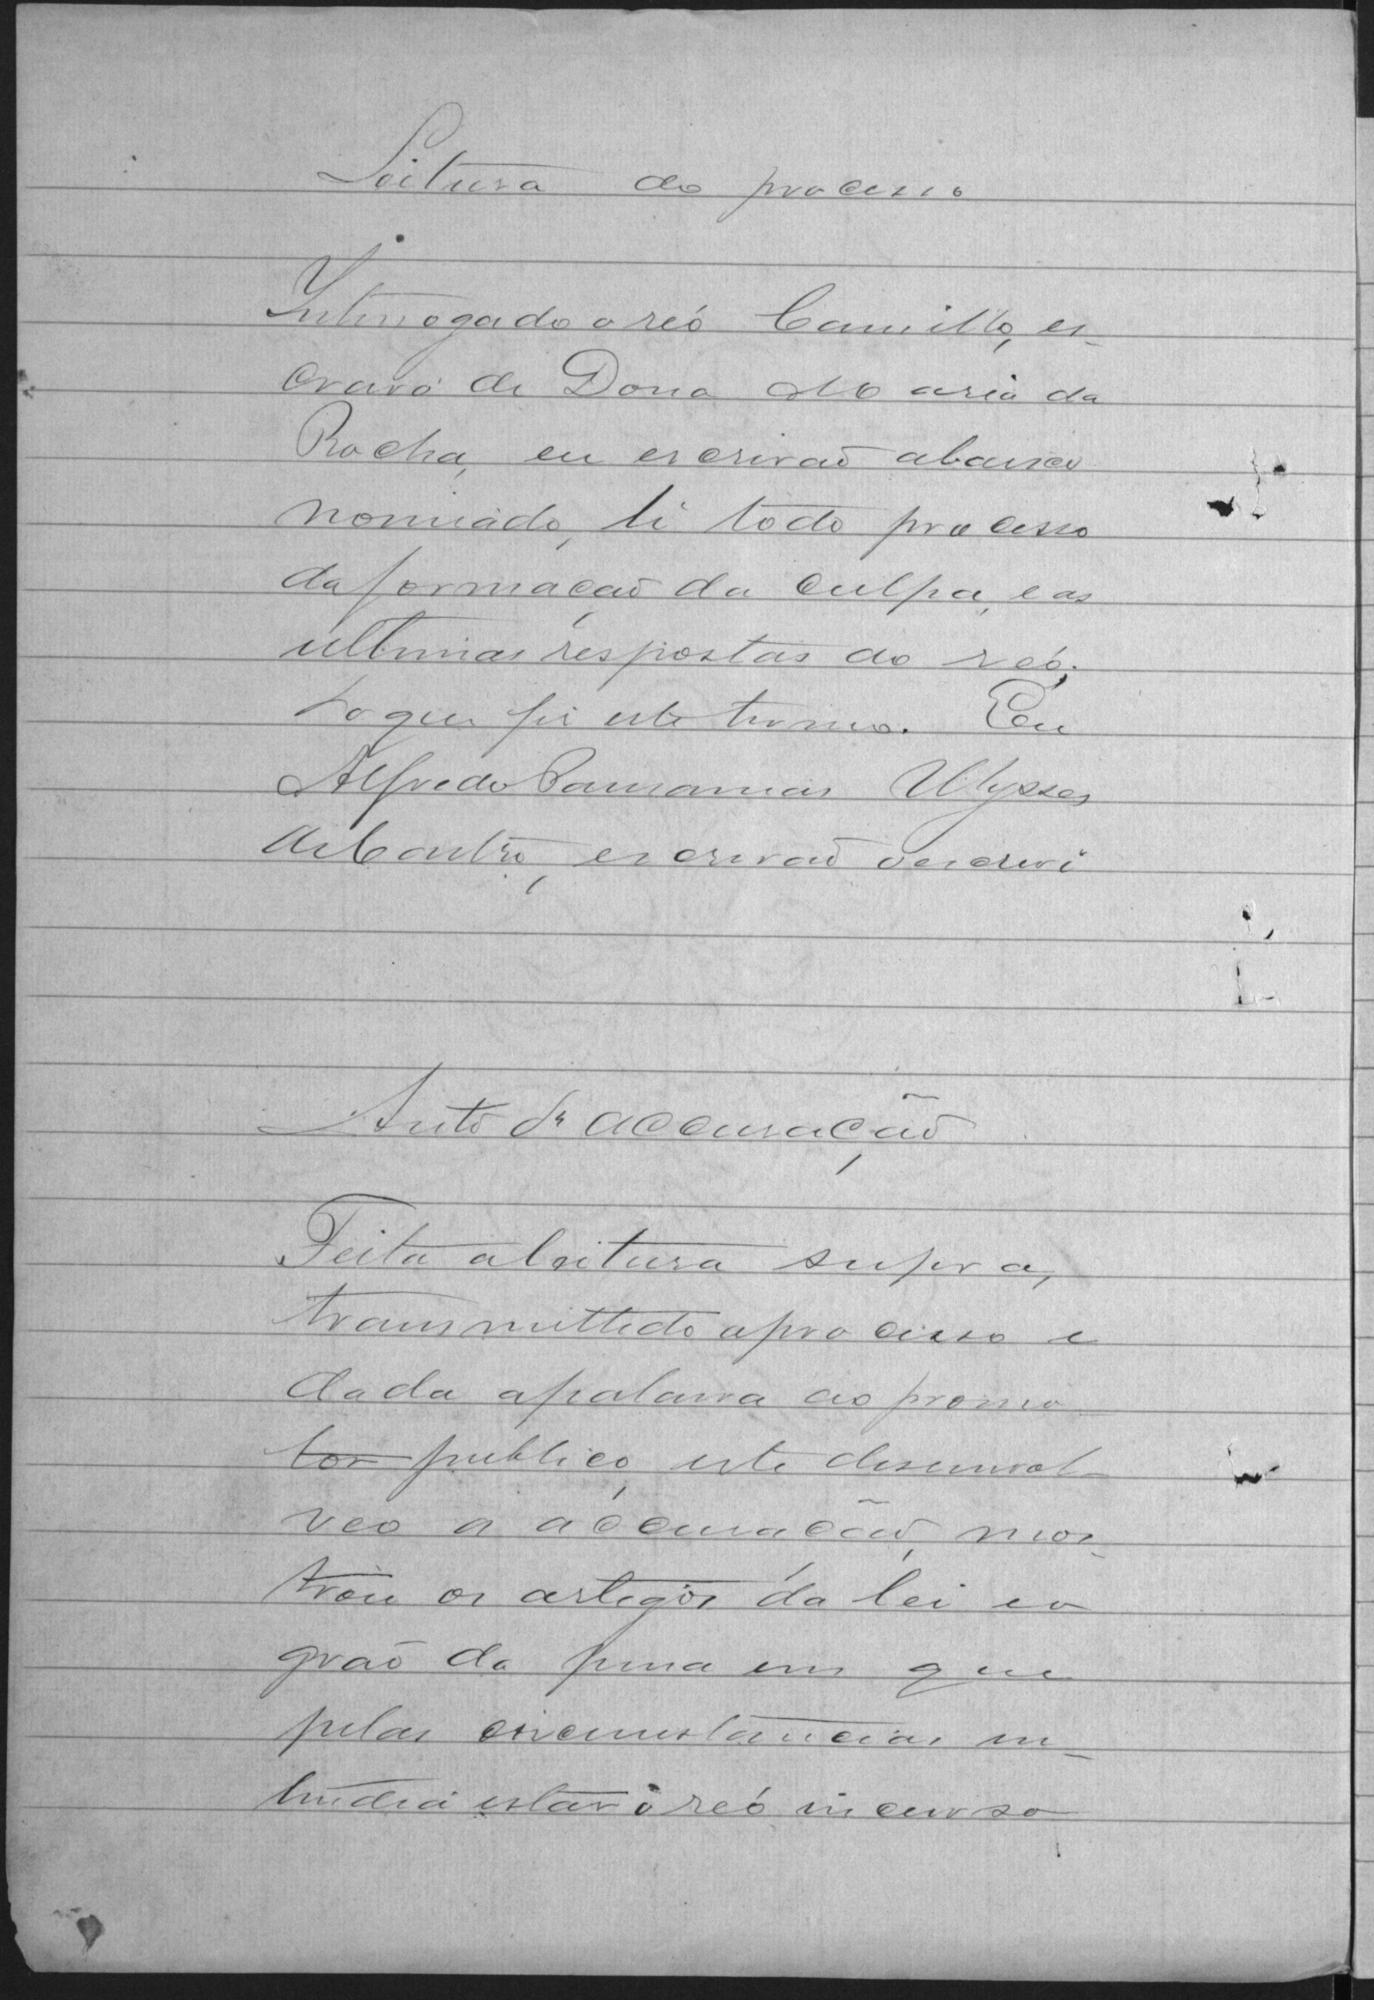 Leitura do processo
Interrogado o reó Camillo, es-
cravo de Dona Maria da
Rocha, eu escrivaõ abaixo
nomiado, li todo processo
da formaçaõ da culpa, e as
ultimas respostas do reó;
do que fis este termo. Eu
Alfredo Pausanias Ulysses
de Castro, escrivaõ o escrevi
Auto de accusação
Feita a leitura supra,
transmittido o processo e
dada a palavra ao promo
tor publico, este desenvol-
veo a accusação, mos-
trou os artigos da lei e o
graó da pena em que
pelas circumstancias en-
tendia estar o reó incurso